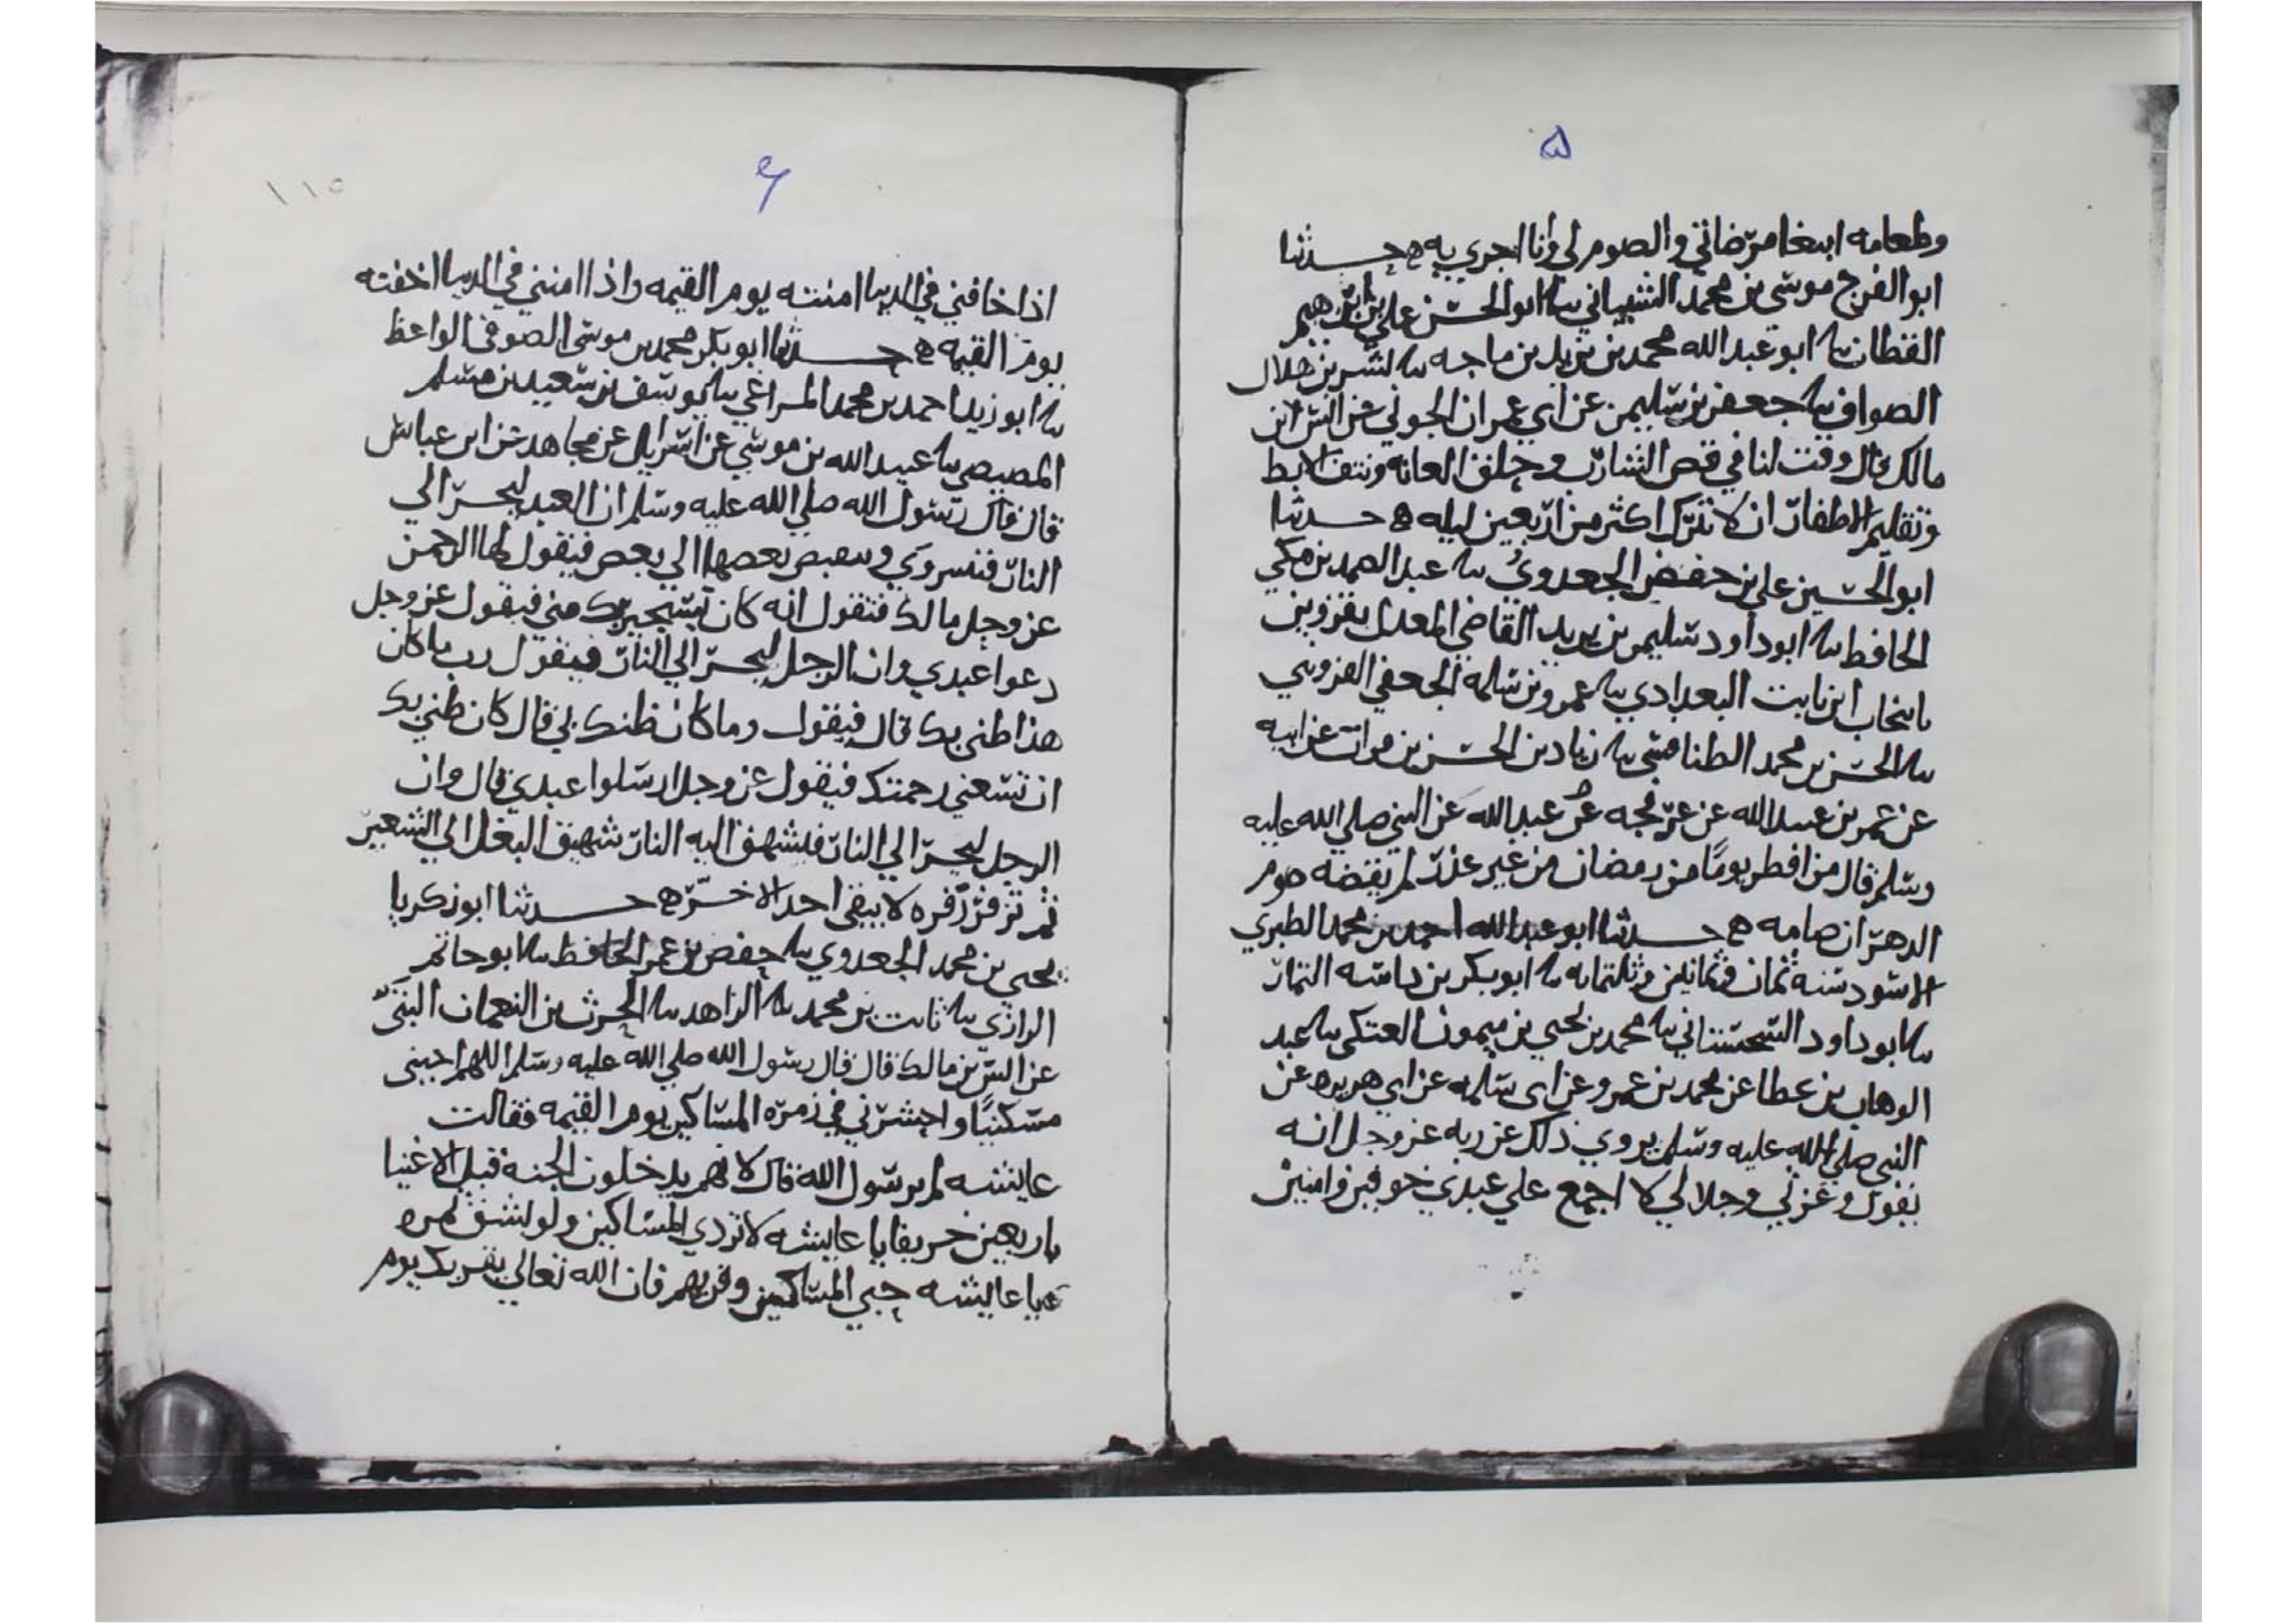 ۵
وطعامه ابتغا مرضاتي والصوم لي وانا اجري به ه حدثنا
ابو الفرج موسى بن محمد الشيباني نا ابو الحسن علي بن ابرهيم
القطان نا ابو عبد الله محمد بن يزيد بن ماجه نا بشر بن هلال
الصواف نا جعفر بن سليمن عن ابي عمران الجوني عن انس ابن
مالك قال وقت لنا في قص الشارب وحلق العانه ونتف الابط
وتقليم الاظفار ان لا نترك اكثر من اربعين ليله ه حدثنا
ابو الحسين علي بن حفص الجعدوي نا عبد الصمد بن مكي
الحافظ نا ابو داود سليمن بن يزيد القاضي المعدل بقزوين
بانتخاب ابن ثابت البغدادي نا عمرو بن سلمه الجعفي القزويني
نا الحسن بن محمد الطنافسي نا زياد بن الحسن بن فرات عن ابيه
عن عمر بن عبد الله عن عرفجه عن عبد الله عن النبي صلى الله عليه
وسلم قال من افطر يومًا من رمضان من غير عذر لم يقضه صوم
الدهر ان صامه ه حدثنا ابو عبد الله احمد بن محمد الطبري
الاسود سنه ثمان وثمانين وثلثمايه نا ابو بكر بن داسه التمار
نا ابو داود السجستاني نا محمد بن يحيى بن ميمون العتكي نا عبد
الوهاب بن عطا عن محمد بن عمرو عن ابي سلمه عن ابي هريره عن
النبي صلى الله عليه وسلم يروي ذلك عن ربه عز وجل انه
يقول وعزتي وجلالي لا اجمع علي عبدي خوفين وامنين
۶
١١٥
اذا خافني في الدنيا امنته يوم القيمه واذا امنني في الدنيا اخفته
يوم القيمه ه حدثنا ابو بكر محمد بن موسى الصوفي الواعظ
نا ابو زيد احمد بن محمد المراغي نا يوسف بن سعيد بن مسلم
المصيصي نا عبيد الله بن موسي عن اسرايل عن مجاهد عن ابن عباس
قال قال رسول الله صلي الله عليه وسلم ان العبد ليجر الي
النار فتنزوي وينقبض بعضها الي بعض فيقول لها الرحمن
عز وجل مالك فتقول انه كان يستجيرك مني فيقول عز وجل
دعوا عبدي وان الرجل ليجر الي النار فيقول رب ما كان
هذا ظني بك قال فيقول وما كان ظنك بي قال كان ظني بك
ان تسعني رحمتك فيقول عز وجل ارسلوا عبدي قال وان
الرجل ليجر الي النار فلتشهق اليه النار شهيق البغل الي الشعير
ثم تزفر زفره لا يبقى احد الا خر ه حدثنا ابو زكريا
يحيى بن محمد الجعدوي نا حفص بن عمر الحافظ نا ابو حاتم
الرازي نا ثابت بن محمد نا الزاهد نا الحرث بن النعمان الليثي
عن انس بن مالك قال قال رسول الله صلي الله عليه وسلم اللهم احيني
مسكينًا واحشرني في زمره المساكين يوم القيمه فقالت
عايشه لم يرسول الله قال لانهم يدخلون الجنه قبل الاغنيا
باربعين خريفا يا عايشه لا تردي المساكين ولو بشق تمره
يا عايشه حبي المساكين وقربيهم فان الله تعالي يقربك يوم